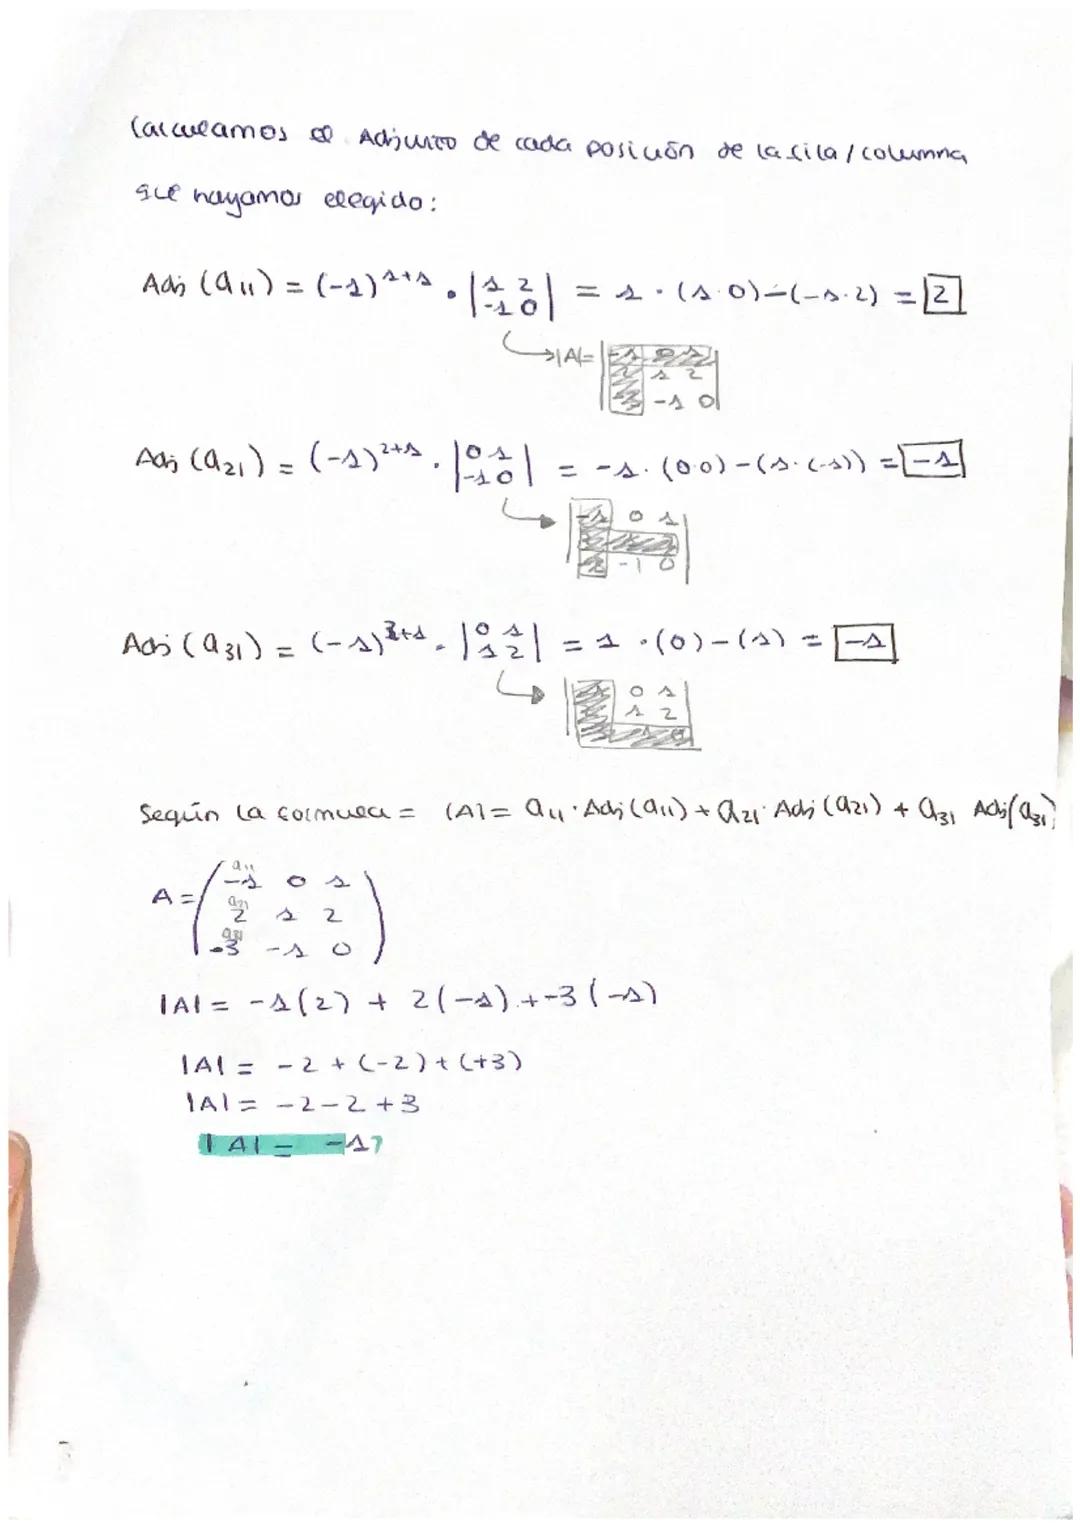 Calculamos el Adjunto de cada posición de la fila / columna
que hayamos elegido:
Adj (a11) = (-1)^1+1 . |1 2| = 1 · (1·0)-(-1·2) = 2
|-1 0|
→ |A|= |-1 0 1|
|2 1 2|
|3 -1 0|
Adj (a21) = (-1)^2+1 . |0 1| = -1 · (0·0) - (1·(-1)) = -1
|-1 0|
→ |-1 0 1|
-1 0|
Adj (a31) = (-1)^3+1 . |0 1| = 1 · (0) - (1) = -1
|1 2|
→ 0 1|
1 2|
Según la formula = |A| = a11 · Adj (a11) + a21 · Adj (a21) + a31 Adj (a31)
a11
A = (-1 0 1)
a21
2 1 2
a31
-3 -1 0
|A| = -1(2) + 2(-1) + -3(-1)
|A| = -2 + (-2) + (+3)
|A| = -2 - 2 + 3
|A| = -1